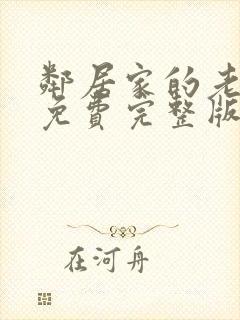 鄰居家的老
免費完整版
在河舟